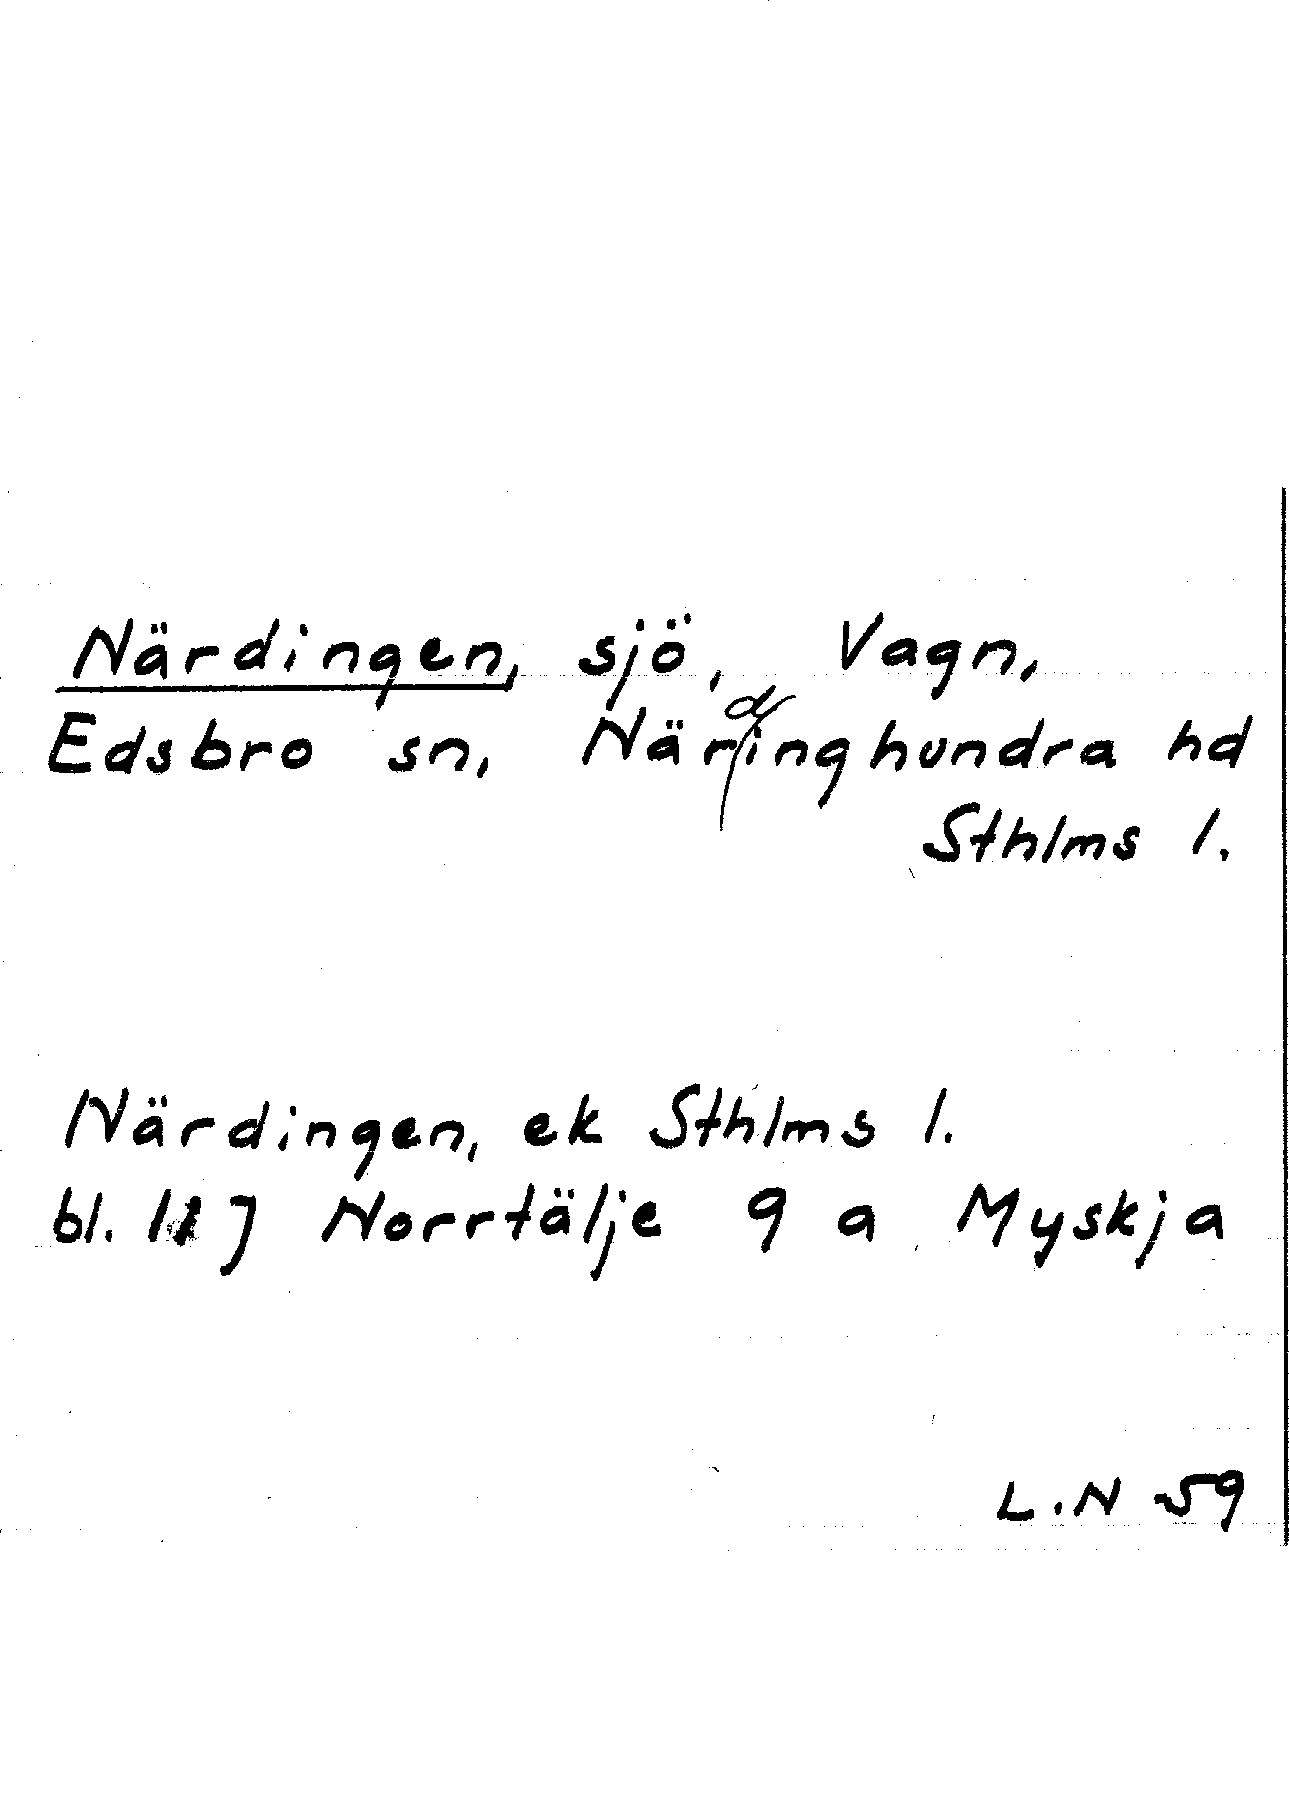 Närdingen, sjö, Vagn,
Edsbro sn, Närdinghundra hd
Sthlms l.
Närdingen, ek Sthlms l.
bl. 11J Norrtälje 9 a Myskja
L.N 59